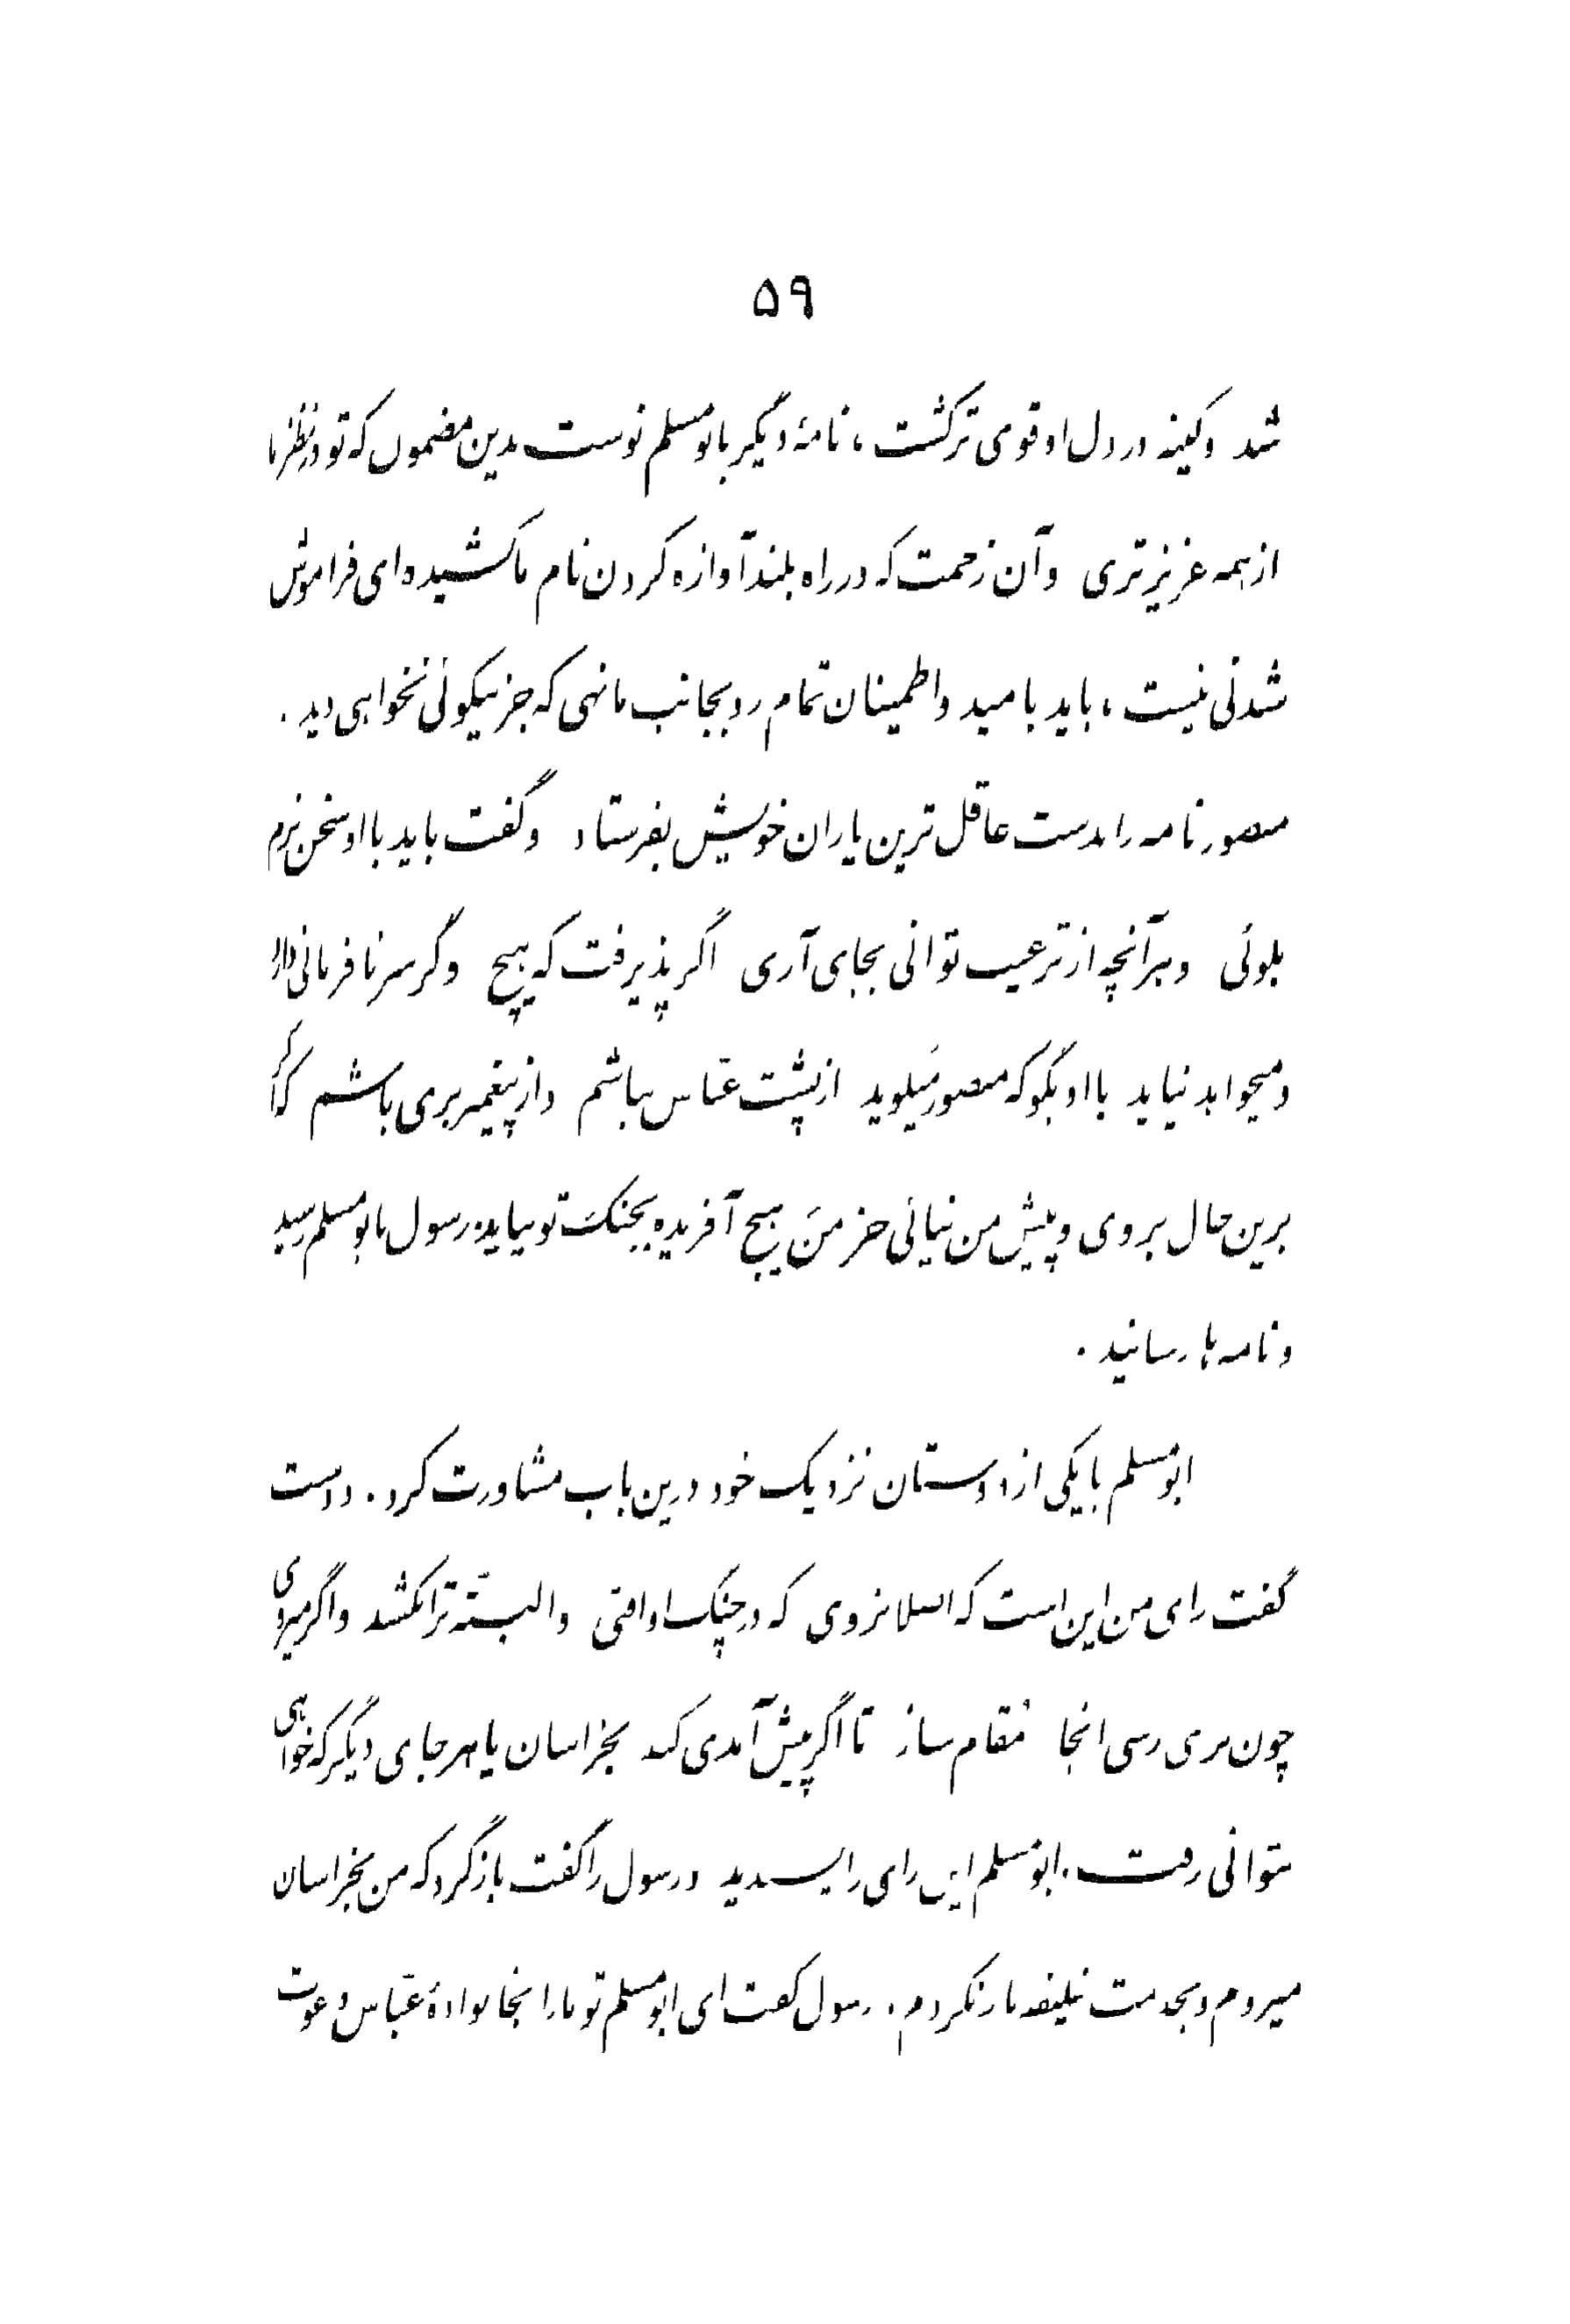 ۵۹
شد و کینه در دل او قوی ترگشت ، نامهٔ دیگر بابومسلم نوشت بدین مضمون که تو در نظر ما
از همه عزیزتری و آن زحمت که در راه بلند آوازه کردن نام ما کشیده‌ای فراموش
شدنی نیست ، باید بامید و اطمینان تمام رو بجانب ما نهی که جز نیکوئی نخواهی دید .
منصور نامه را بدست عاقل ترین یاران خویش بفرستاد و گفت باید با او سخن بنرم
بگوئی و هر آنچه از ترغیب توانی بجای آری اگر پذیرفت که هیچ وگر سر نافرمانی دارد
و میخواهد نیاید با او بگو که منصور میگوید از پشت عبّاس نباشم و از پیغمبر بری باشم که اگر
برین حال بروی و پیش من نیائی جز من هیچ آفریده بجنگ تو نیاید . رسول بابومسلم رسید
و نامه بار سانید .
ابومسلم با یکی از دوستان نزدیک خود درین باب مشاورت کرد . دوست
گفت رای من این است که اصلا نروی که در چنگ او افتی و البتّه ترا بکشد و اگر میروی
چون بری رسی انجا مقام ساز تا اگر پیش آمدی کند بخراسان یا هر جای دیگر که خواهی
بتوانی رفت . ابومسلم این رای را پسندید و رسول را گفت بازگرد که من بخراسان
میروم و بخدمت خلیفه بازنگردم . رسول گفت ای ابومسلم تو ما را بخانوادهٔ عبّاس دعوت